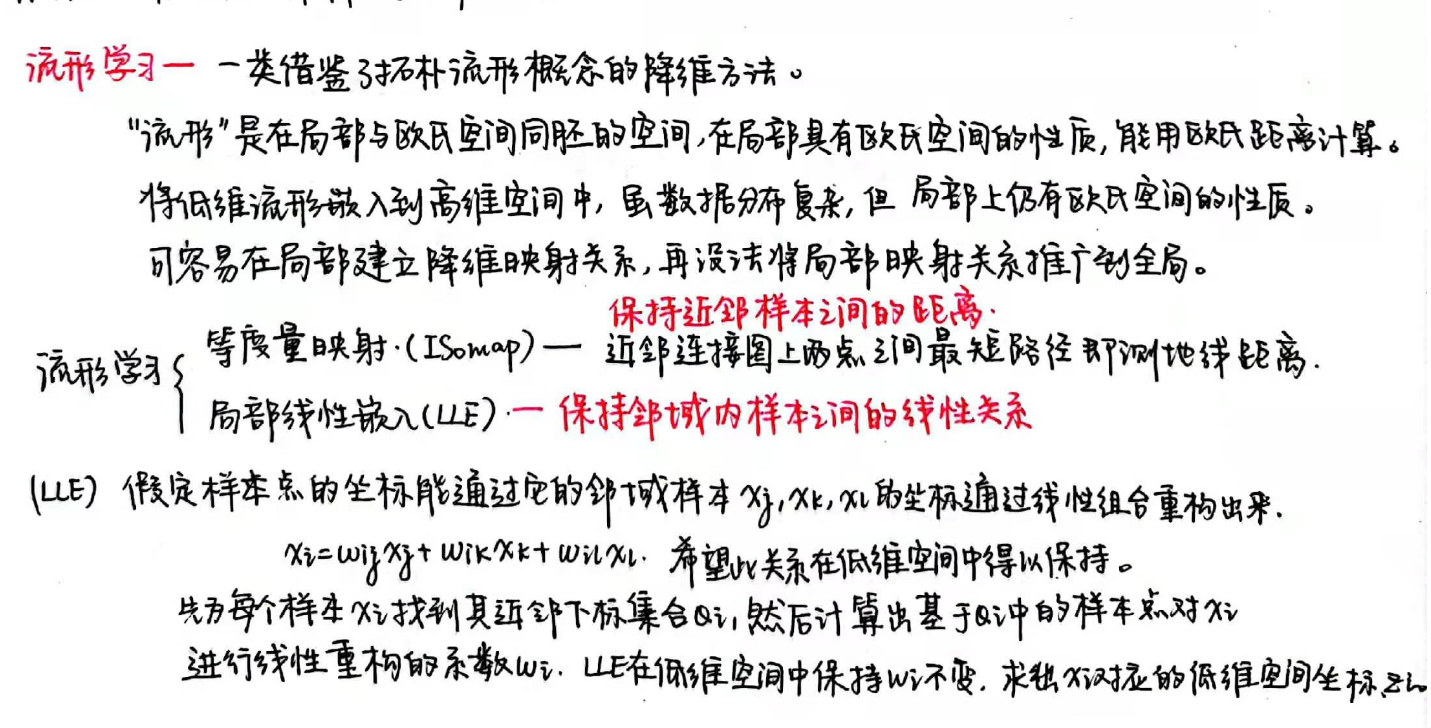 流形学习— 一类借鉴了拓扑流形概念的降维方法。
"流形"是在局部与欧氏空间同胚的空间,在局部具有欧氏空间的性质,能用欧氏距离计算。
将低维流形嵌入到高维空间中,虽数据分布复杂,但局部上仍有欧氏空间的性质。
可容易在局部建立降维映射关系,再设法将局部映射关系推广到全局。
保持近邻样本之间的距离.
等度量映射.(ISomap)— 近邻连接图上两点之间最短路径即测地线距离.
流形学习{
局部线性嵌入(LLE).— 保持邻域内样本之间的线性关系
(LLE) 假定样本点的坐标能通过它的邻域样本xj,xk,xl的坐标通过线性组合重构出来.
xi=wijxj+wikxk+wilxl. 希望此关系在低维空间中得以保持。
先为每个样本xi找到其近邻下标集合Qi,然后计算出基于Qi中的样本点对xi
进行线性重构的系数wi. LLE在低维空间中保持wi不变.求出xi对应的低维空间坐标zi